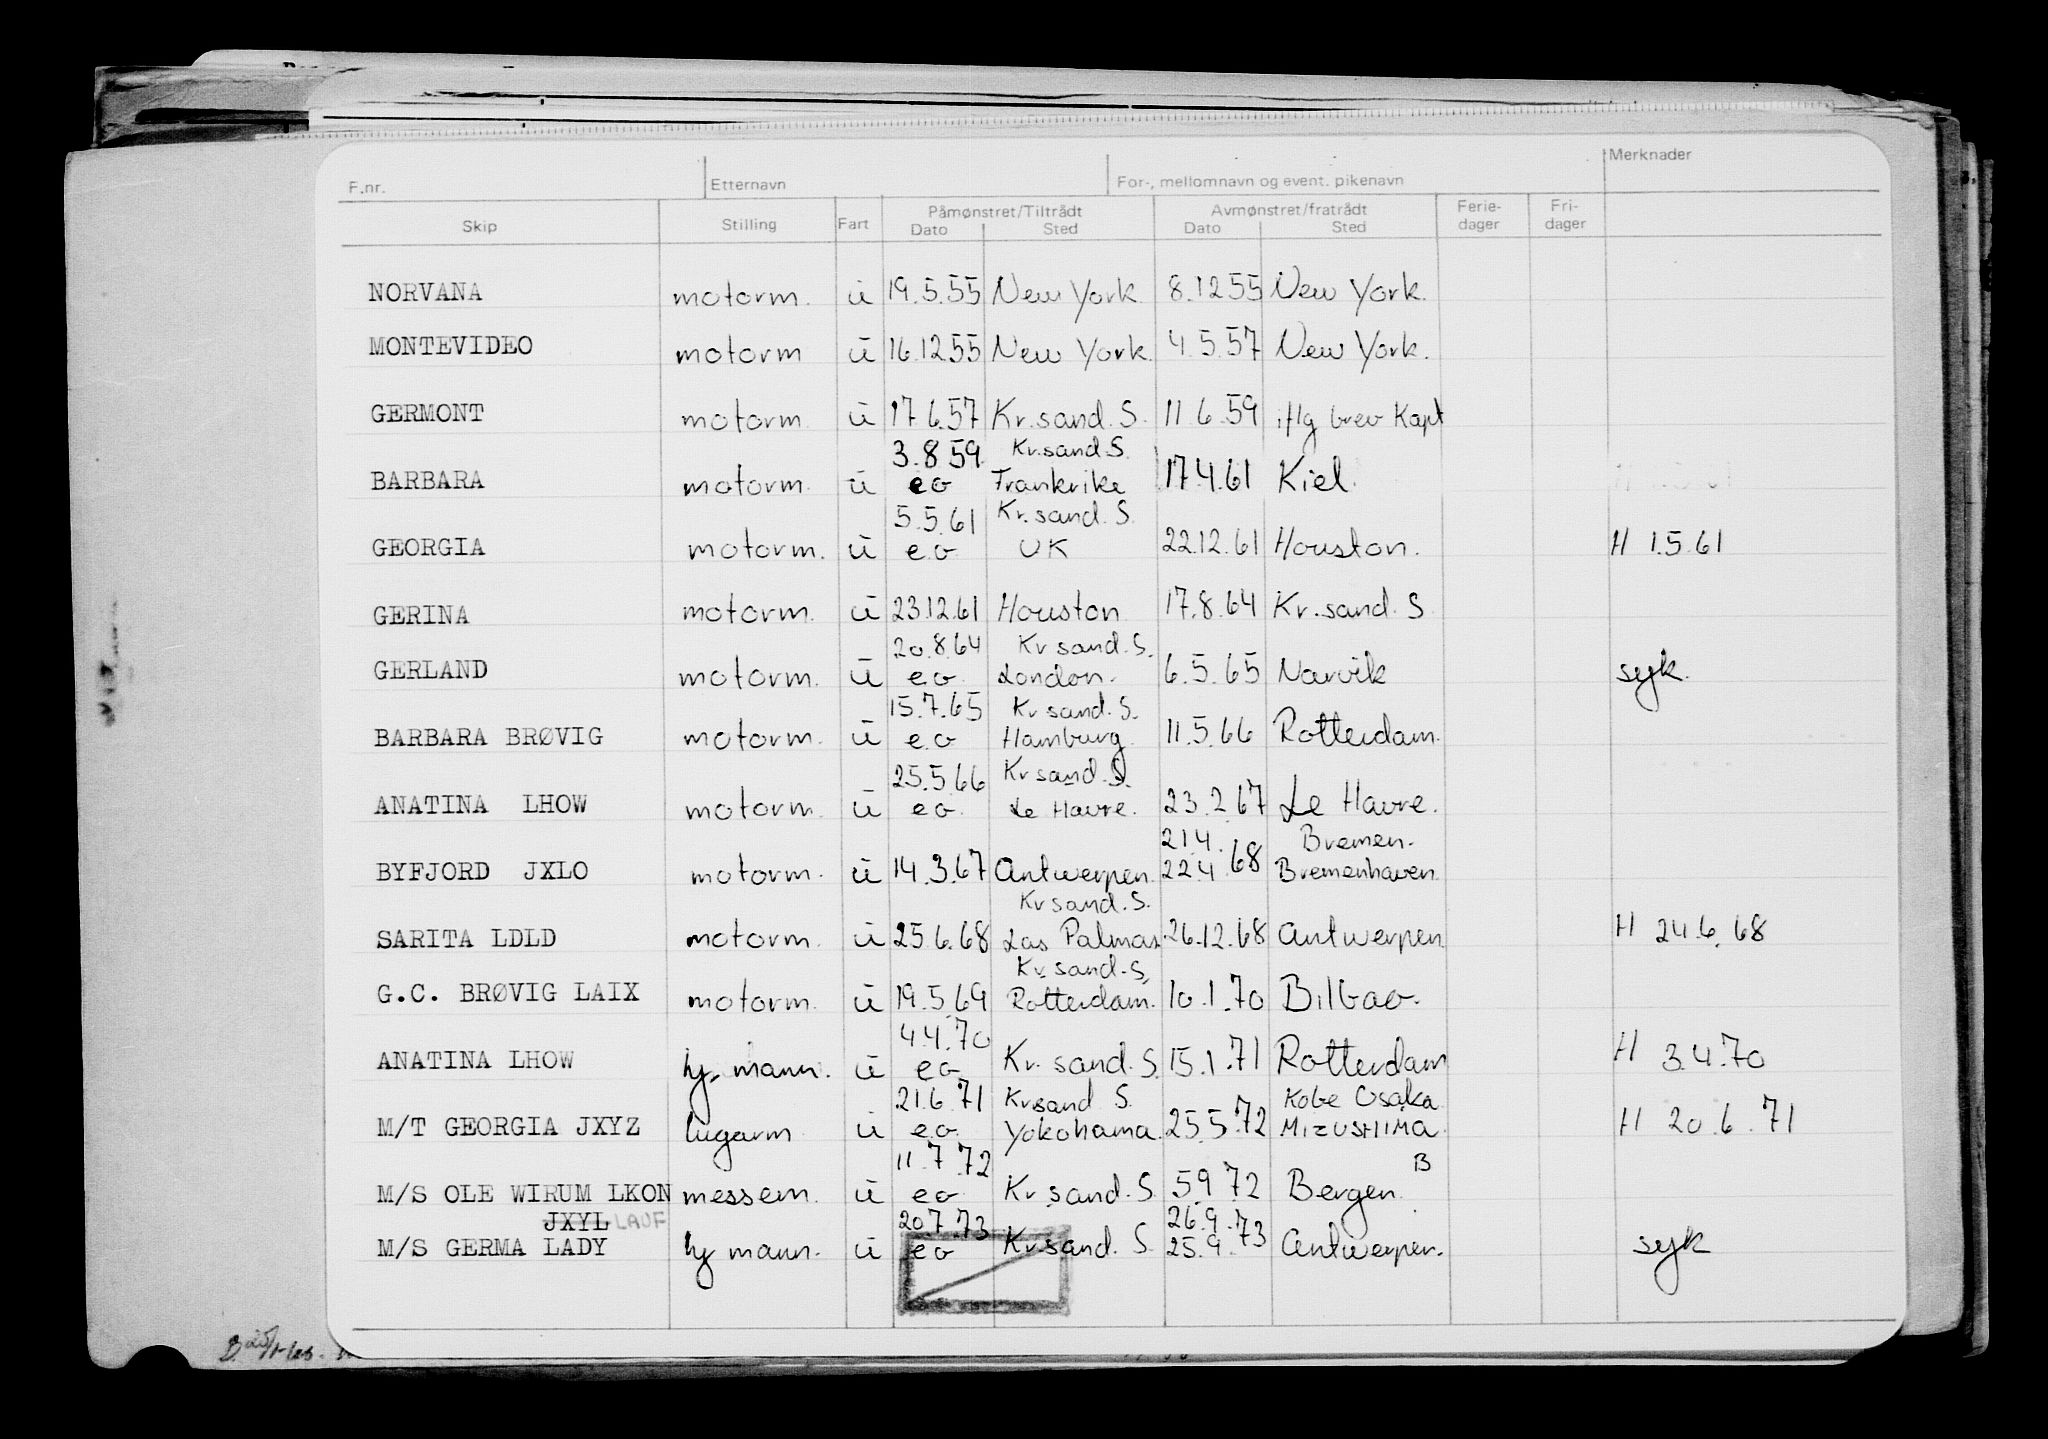 F.nr. Etternavn For-, mellomnavn og event. pikenavn Merknader
Skip Stilling Fart Påmønstret/Tiltrådt Avmønstret/fratrådt Ferie- Fri-
Dato Sted Dato Sted dager dager
NORVANA motorm. ü 19.5.55 New York 8.12 55 New York.
MONTEVIDEO motorm ü 16.12 55 New York. 4.5.57 New York.
GERMONT motorm ü 17.6.57 Kr.sand.S. 11 6.59 iflg brev Kapt
3.8 59. Kr.sand.S.
BARBARA motorm. ü eo Frankrike 17.4.61 Kiel.
5.5.61 Kr.sand.S.
GEORGIA motorm. ü e.o UK 22.12.61 Houston. H 1.5.61
GERINA motorm. ü 23.12.61 Houston 17.8.64 Kr.sand.S
20.8.64 Kr sand.S.
GERLAND motorm. ü e.o. London. 6.5.65 Narvik syk.
15.7.65 Kr sand.S.
BARBARA BRØVIG motorm. ü e.o Hamburg. 11.5.66 Rotterdam.
25.5.66 Kr sand.S.
ANATINA LHOW motorm. ü e o. Le Havre. 23.2.67 Le Havre.
21.4. Bremen.
BYFJORD JXLO motorm. ü 14.3.67 Antwerpen. 22.4.68 Bremenhaven.
Kr sand.S.
SARITA LDLD motorm. ü 25.6.68 Las Palmas 26.12.68 Antwerpen H 24.6.68
Kr.sand.S,
G.C. BRØVIG LAIX motorm. ü 19.5.69 Rotterdam. 10.1.70 Bilbao.
4.4.70
ANATINA LHOW ly. mann. ü eo Kr. sand.S. 15.1.71 Rotterdam H 3.4.70
21.6.71 Kr.sand S. Kobe Osaka
M/T GEORGIA JXYZ lugarm ü e.o. Yokohama. 25.5.72 MIZUSHIMA. H 20.6.71
11.7.72 B
M/S OLE WIRUM LKON messem. ü eo Kr sand.S 5.9 72 Bergen.
JXYL LAUF 20.7.73 26.9.
M/S GERMA LADY ly mann. ü eo Kr.sand.S. 25.9.73 Antwerpen. syk